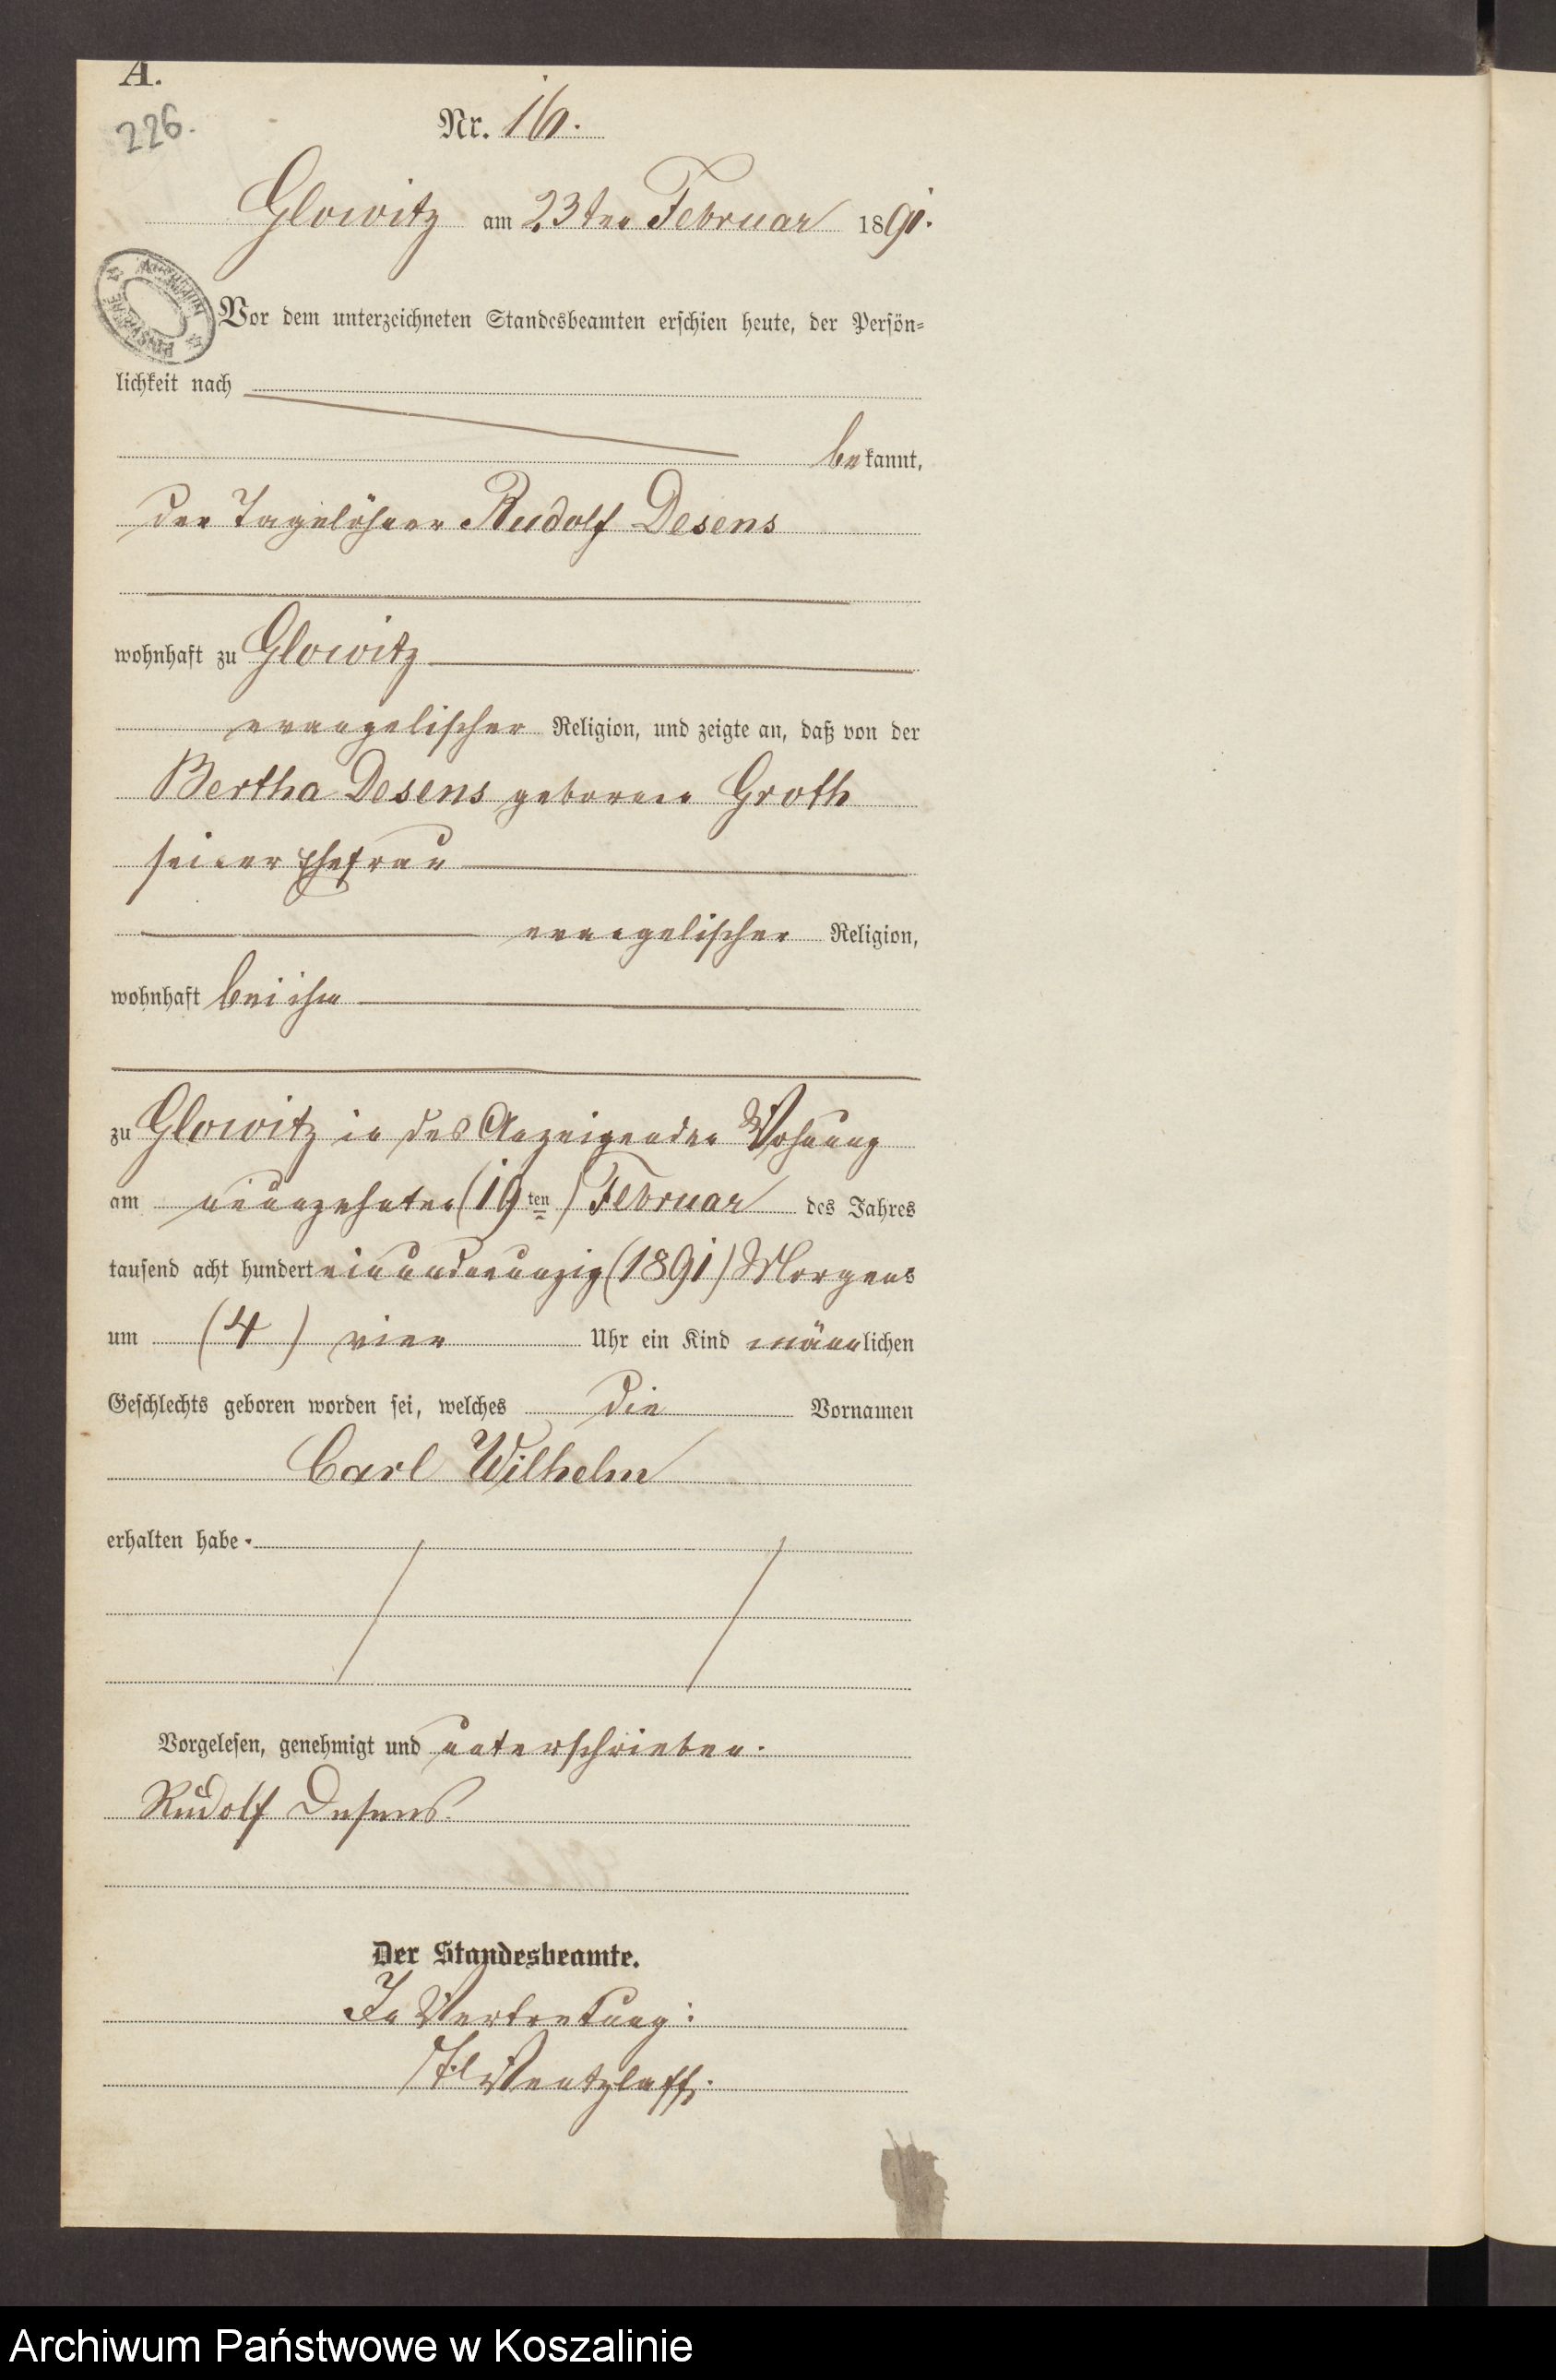 A.
226.
Nr. 16.
Glowitz am 23ten Februar 1891.
Vor dem unterzeichneten Standesbeamten erschien heute, der Persön-
lichkeit nach
bekannt,
der Tagelöhner Rudolf Desens
wohnhaft zu Glowitz
evangelischer Religion, und zeigte an, daß von der
Bertha Desens geborene Groth
seiner Ehefrau
evangelischer Religion,
wohnhaft bei ihm
zu Glowitz in des Anzeigenden Wohnung
am neunzehnten (19ten) Februar des Jahres
tausend acht hundert einundneunzig (1891) Morgens
um (4) vier Uhr ein Kind männlichen
Geschlechts geboren worden sei, welches die Vornamen
Carl Wilhelm
erhalten habe.
Vorgelesen, genehmigt und unterschrieben.
Rudolf Desens.
Der Standesbeamte.
In Vertretung:
Wentzlaff.
Archiwum Państwowe w Koszalinie